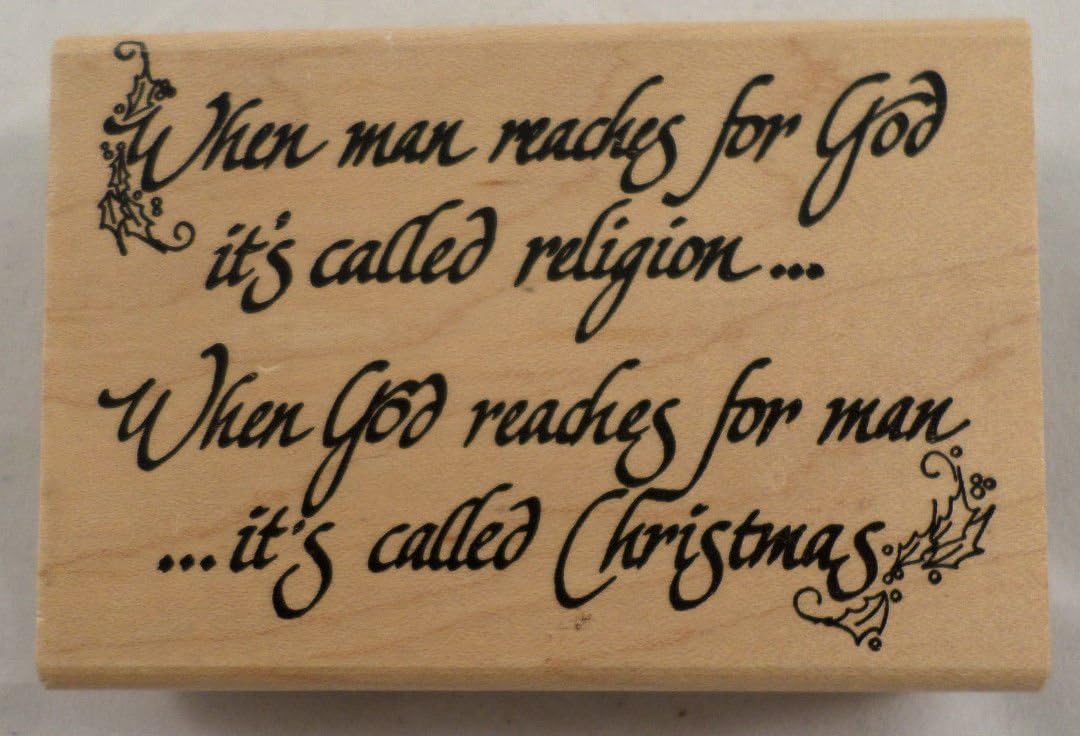 When man reaches for God
it's called religion...
When God reaches for man
...it's called Christmas